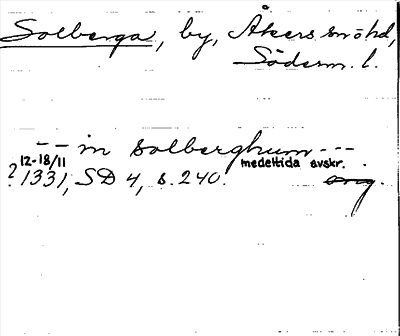 Solberga, by, Åkers sn o hd,
Söderm. l.
--- in solberghum ---
12-18/11 medeltida avskr.
? 1331, SD 4, s. 240. orig.